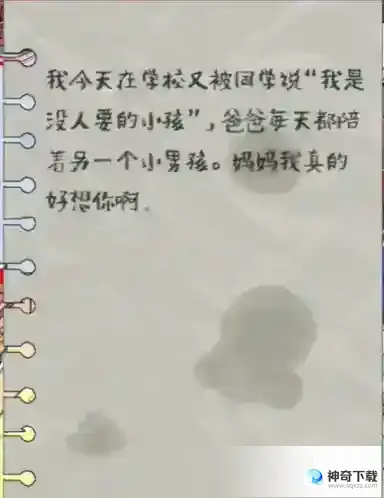 我今天在学校又被同学说“我是
没人要的小孩”，爸爸每天都陪
着另一个小男孩。妈妈我真的
好想你啊.
神奇下载
www.sqxzz.com